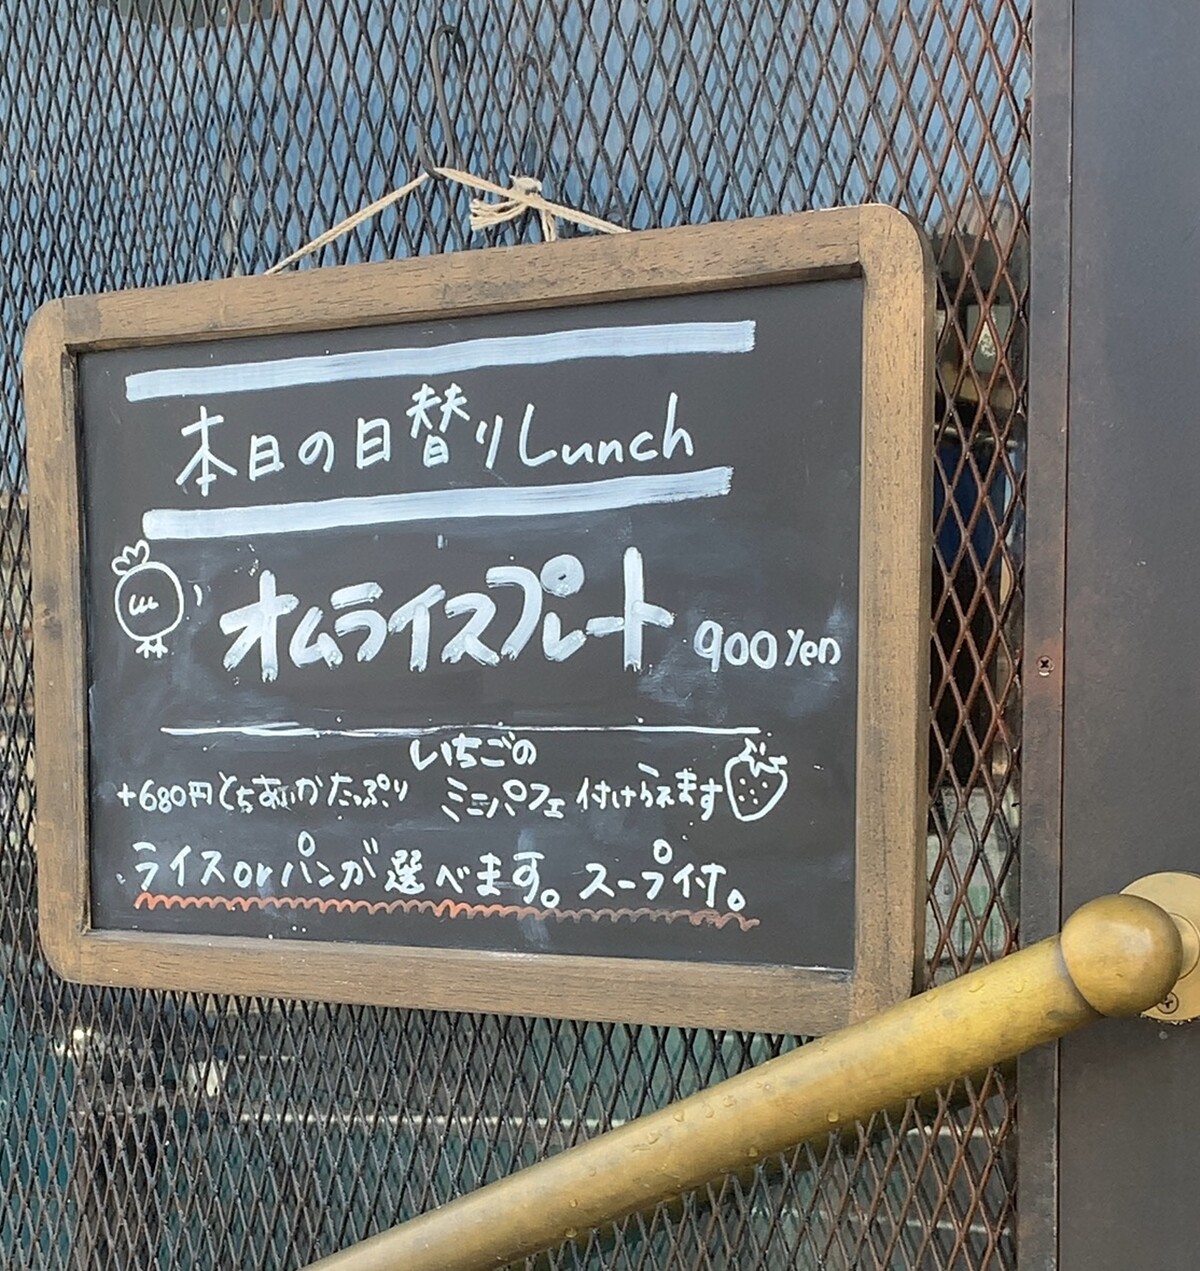 本日の日替りLunch
オムライスプレート 900yen
いちごの
+680円とちあいかたっぷり ミニパフェ 付けらえます
ライスorパンが選べます。スープ付。